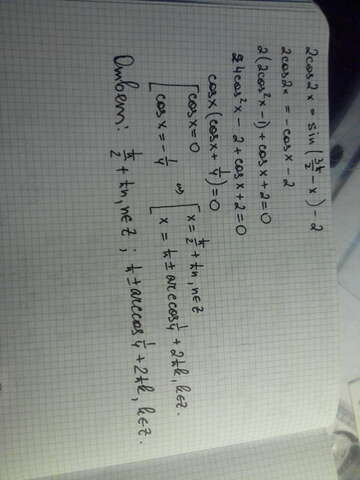 2cos2x = sin(3π/2 - x) - 2
2cos2x = -cosx - 2
2(2cos²x - 1) + cosx + 2 = 0
4cos²x - 2 + cosx + 2 = 0
cosx(cosx + 1/4) = 0
[ cosx = 0 ⇔ [ x = π/2 + πn, n∈Z
[ cosx = -1/4 [ x = π ± arccos 1/4 + 2πk, k∈Z.
Ответ: π/2 + πn, n∈Z ; π ± arccos 1/4 + 2πk, k∈Z.